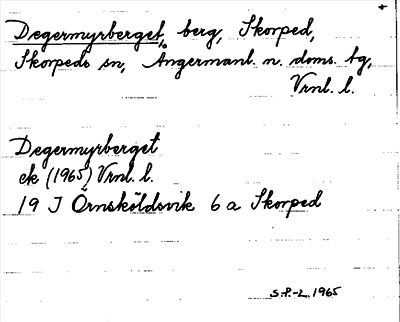 Degermyrberget, berg, Skorped,
Skorpeds sn, Ångermanl. n. doms. tg,
Vrnl. l.
Degermyrberget
ek (1965) Vrnl. l.
19 J Örnsköldsvik 6 a Skorped
S.P.-L. 1965